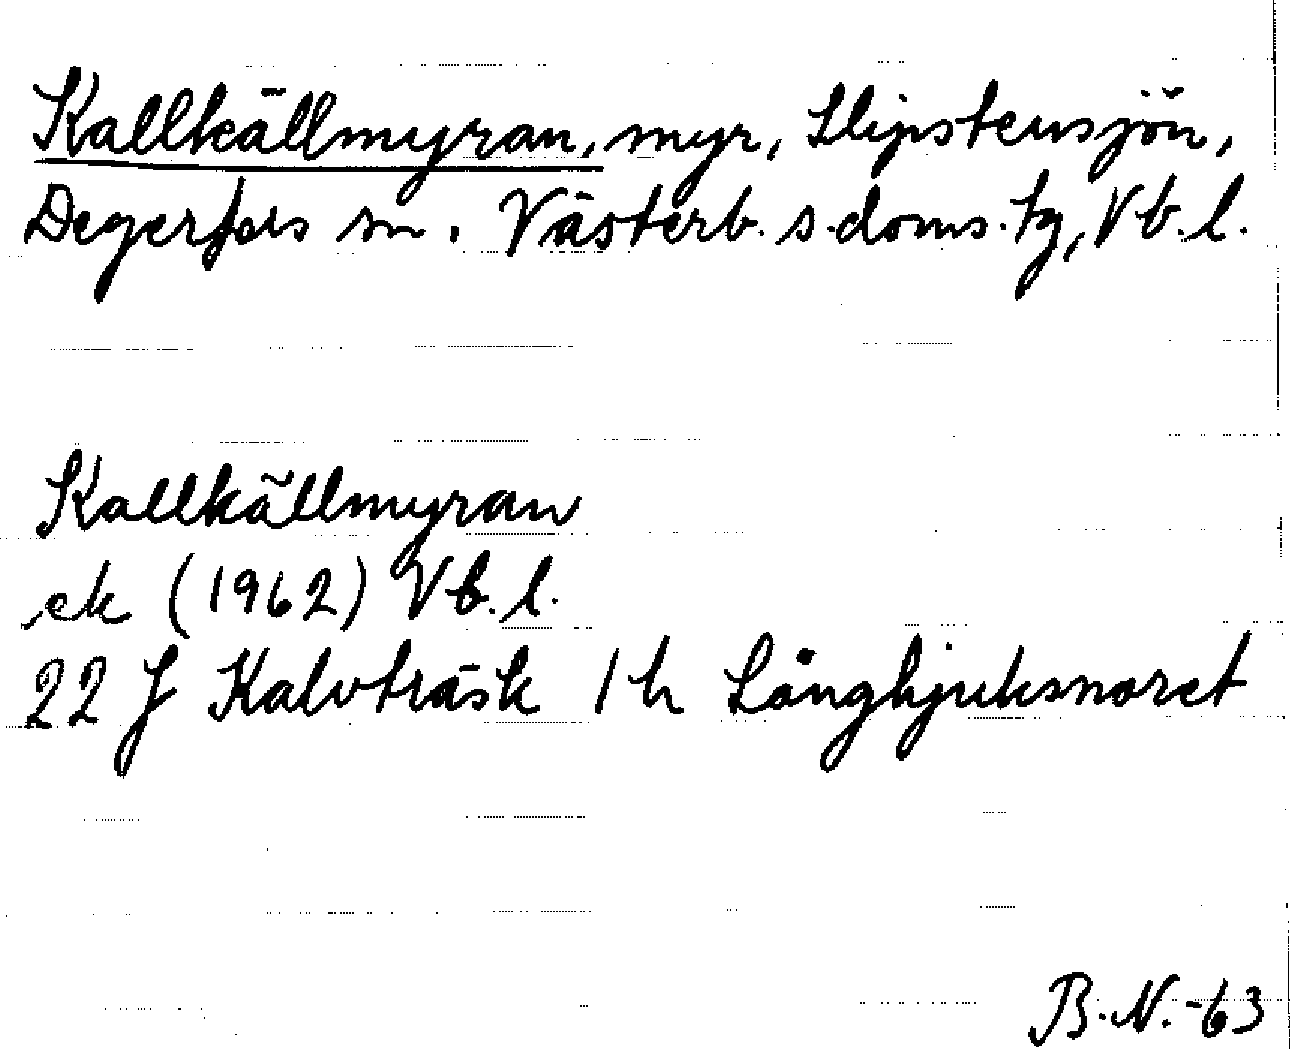 Kallkällmyran, myr, Slipstensjön,
Degerfors sn. Västerb. s. doms. tg, Vb. l.
Kallkällmyran
ek (1962) Vb. l.
22 J Kalvträsk 1 h Långbjuksnoret
B.N.-63